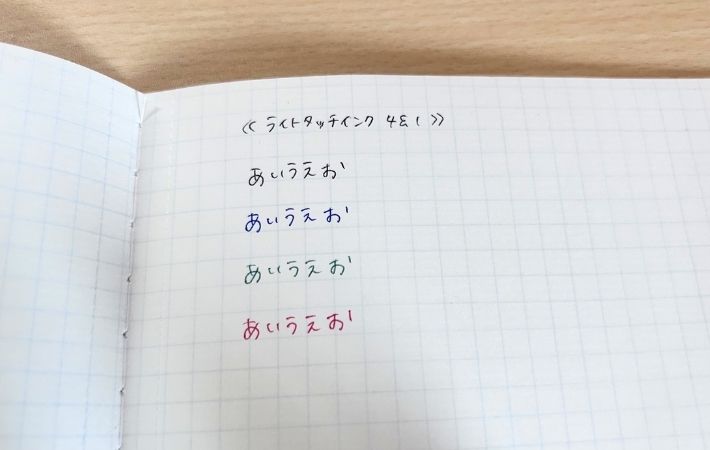 《 ライトタッチインク 4&1 》
あいうえお
あいうえお
あいうえお
あいうえお